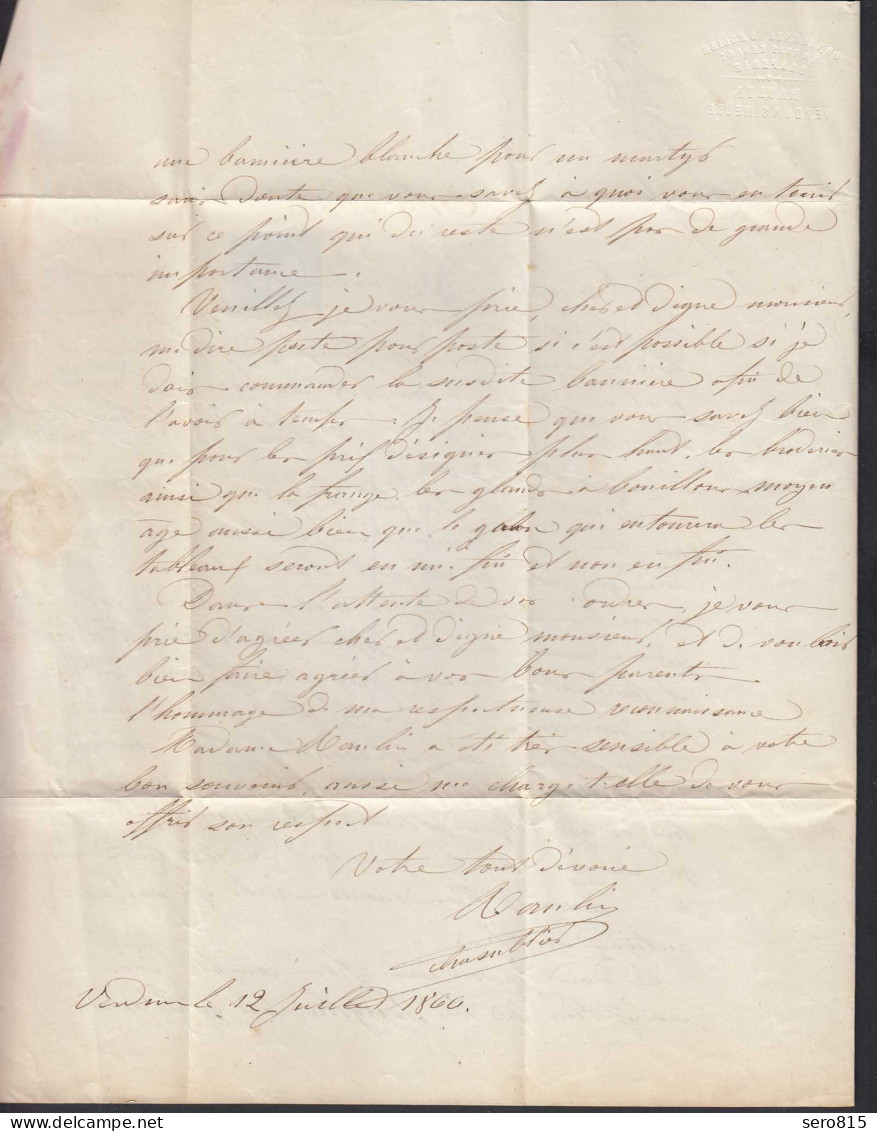 une bannière blanche pour un martyr
sans doute que vous savez à quoi vous en tenir
sur ce point qui du reste n'est pas de grande
importance.
Veuillez je vous prie, cher et digne monsieur,
me dire poste pour poste si c'est possible si je
dois commander la susdite bannière afin de
l'avoir à temps. Je pense que vous savez bien
que pour les prix désignés plus haut, les broderies
ainsi que la frange, les glands à bouillons moyen
age aussi bien que le galon qui entourera les
tableaux seront en mi-fin et non en fin.
Dans l'attente de vos ordres, je vous
prie d'agréer cher et digne monsieur, et de vouloir
bien faire agréer à vos bons parents
l'hommage de ma respectueuse reconnaissance
Madame Raulin a été très sensible à votre
bon souvenir, aussi me charge-t-elle de vous
offrir son respect
Votre tout dévoué
Raulin
chasublier
le 12 Juillet 1860.
RAULIN
MEUSE
sero815